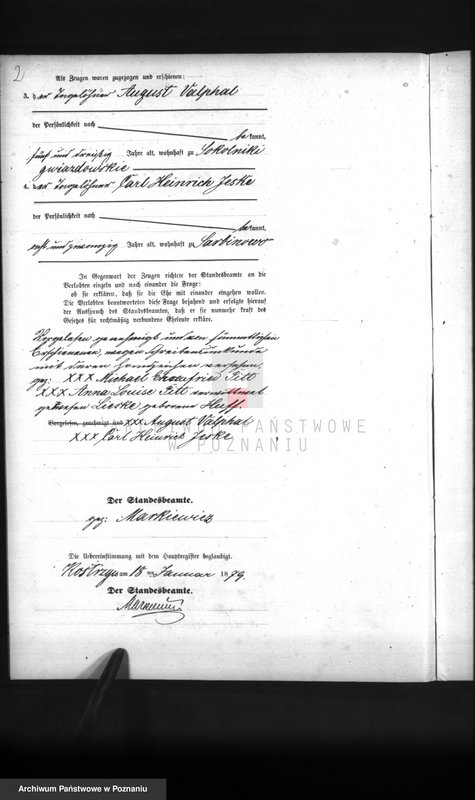 2
Als Zeugen waren zugezogen und erschienen:
3. der Tagelöhner August Valphal
der Persönlichkeit nach
be kannt,
fünf und dreißig Jahre alt, wohnhaft zu Sokolniki
gwiazdowskie
4. der Tagelöhner Carl Heinrich Jeske
der Persönlichkeit nach
be kannt,
sechs und zwanzig Jahre alt, wohnhaft zu Sarbinowo
In Gegenwart der Zeugen richtete der Standesbeamte an die
Verlobten einzeln und nach einander die Frage:
ob sie erklären, daß sie die Ehe mit einander eingehen wollen.
Die Verlobten beantworteten diese Frage bejahend und erfolgte hierauf
der Ausspruch des Standesbeamten, daß er sie nunmehr kraft des
Gesetzes für rechtmäßig verbundene Eheleute erkläre.
Vorgelesen genehmigt und von sämmtlichen
Erschienenen, wegen Schreibensunkunde
mit ihren Handzeichen versehen.
gez: XXX Michael Gottfried Pitt
XXX Anna Louise Pitt verwittwet
gewesene Lieske geborene Huff
Vorgelesen, genehmigt und XXX August Valphal
XXX Carl Heinrich Jeske
ARCHIWUM PAŃSTWOWE
W POZNANIU
Der Standesbeamte.
gez: Markiewicz
Die Uebereinstimmung mit dem Hauptregister beglaubigt.
Kostrzyn am 18 ten Januar 1879.
Der Standesbeamte.
Markiewicz
Archiwum Państwowe w Poznaniu